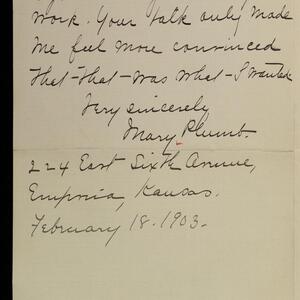 work. Your talk only made
me feel more convinced
that-that-was what-I wanted.
Very sincerely
Mary Plumb.
224 East Sixth Avenue,
Emporia, Kansas.
February 18. 1903.